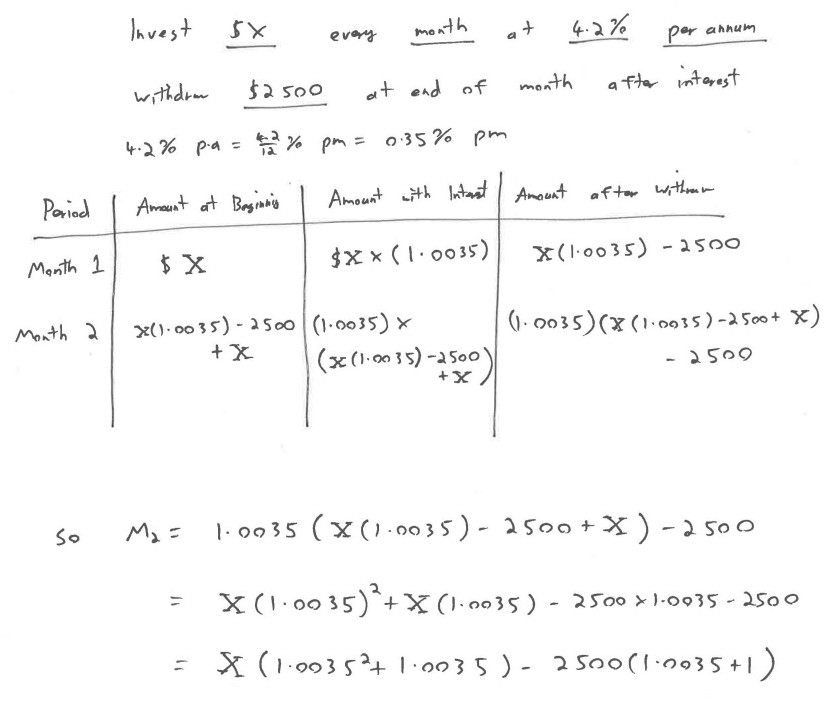 Invest $X every month at 4.2% per annum
withdraw $2500 at end of month after interest
4.2% p.a = 4.2/12 % pm = 0.35% pm
Period | Amount at Beginning | Amount with Interest | Amount after withdraw
Month 1 | $X | $X × (1.0035) | X(1.0035) - 2500
Month 2 | X(1.0035) - 2500 + X | (1.0035) × (X(1.0035) - 2500 + X) | (1.0035)(X(1.0035) - 2500 + X) - 2500
So M₂ = 1.0035 (X(1.0035) - 2500 + X) - 2500
= X(1.0035)² + X(1.0035) - 2500 × 1.0035 - 2500
= X(1.0035² + 1.0035) - 2500(1.0035 + 1)